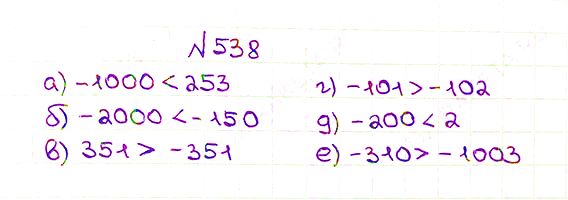 №538
а) -1000 < 253
б) -2000 < -150
в) 351 > -351
г) -101 > -102
д) -200 < 2
е) -310 > -1003